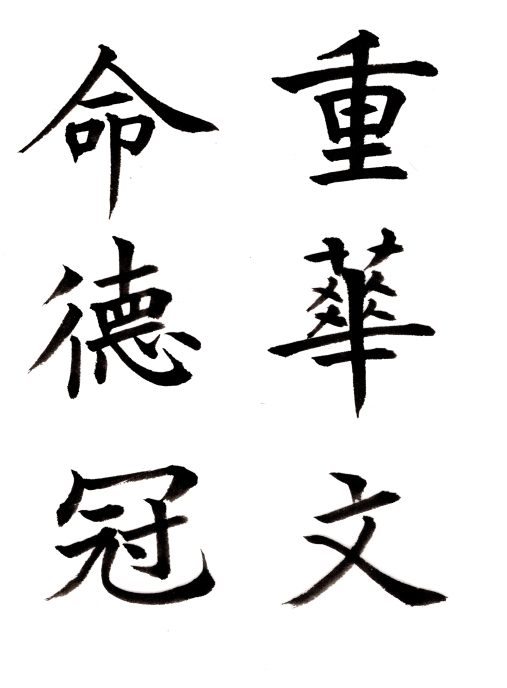 重華文
命德冠